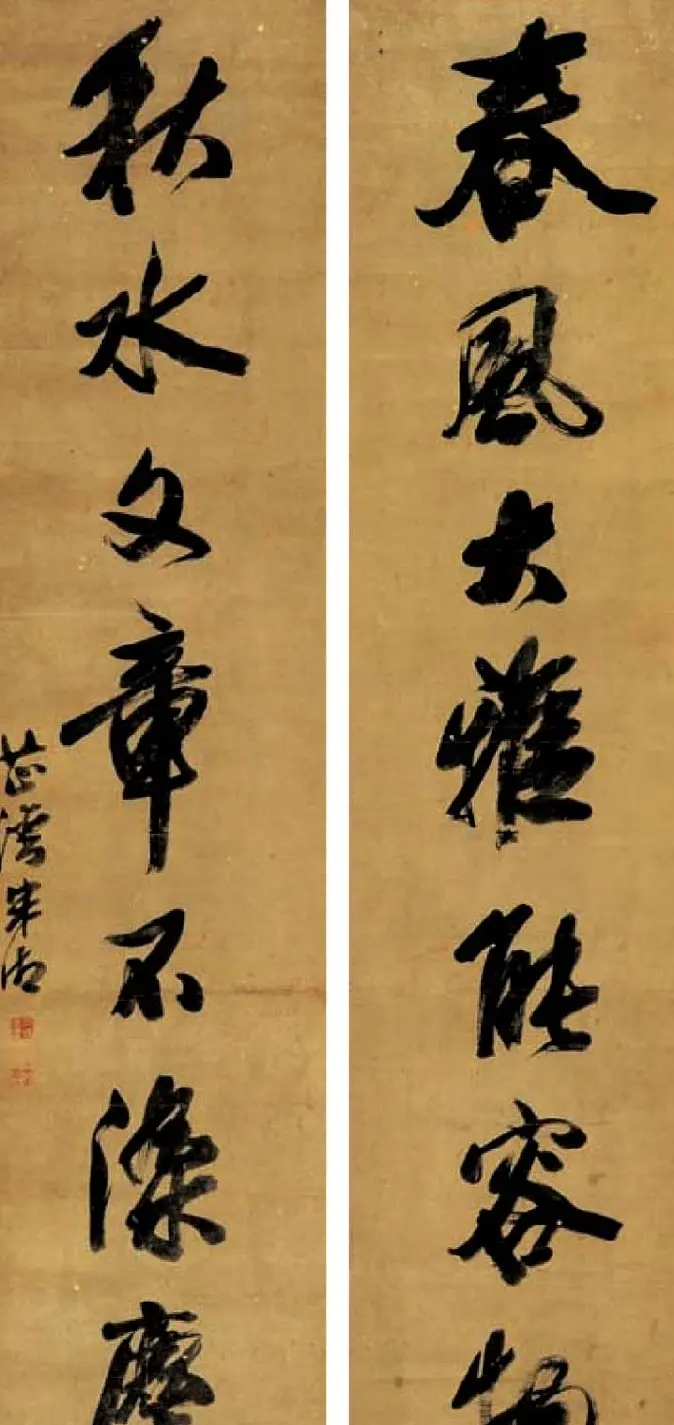 春風大雅能容物
秋水文章不染塵
芷灣宋湘